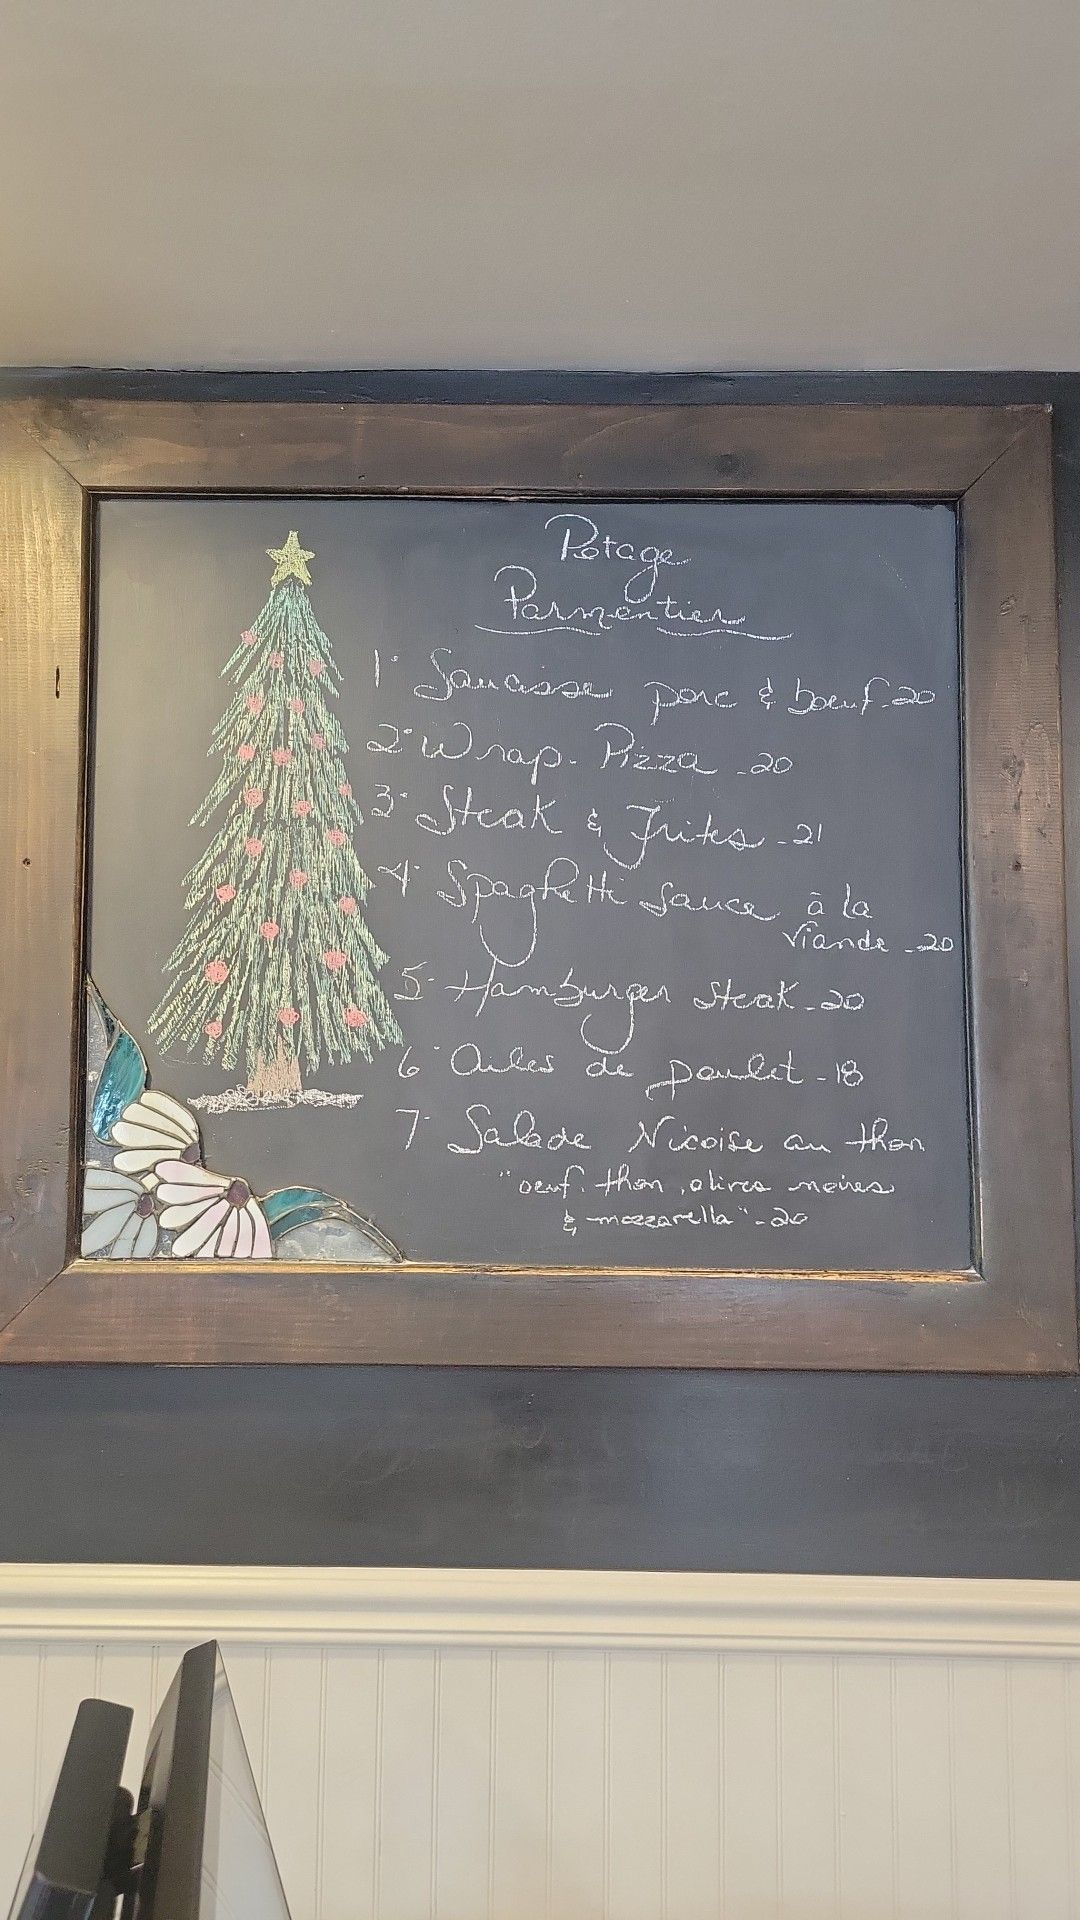 Potage
Parmentier
1· Saucisse porc & boeuf - 20
2· Wrap - Pizza - 20
3· Steak & Frites - 21
4· Spaghetti sauce à la
viande - 20
5· Hamburger steak - 20
6· Ailes de poulet - 18
7· Salade Nicoise au thon
"oeuf, thon, olives noires
& mozzarella" - 20